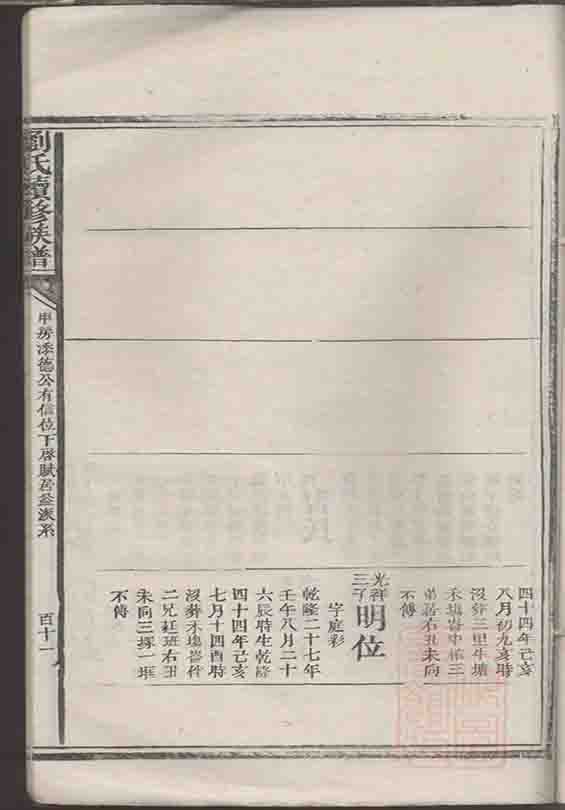 四十四年己亥
八月初九亥時
沒葬三里牛塘
禾塢崙中排三
弟墓右丑未向
不傳
光祥三子
明位
字庭彩
乾隆二十七年
壬午八月二十
六辰時生乾隆
四十四年己亥
七月十四酉時
沒葬禾塢崙伴
二兄廷班右丑
未向三塚一堆
不傳
劉氏續修族譜
申房添德公有信位下啓賦房益派系
百十一